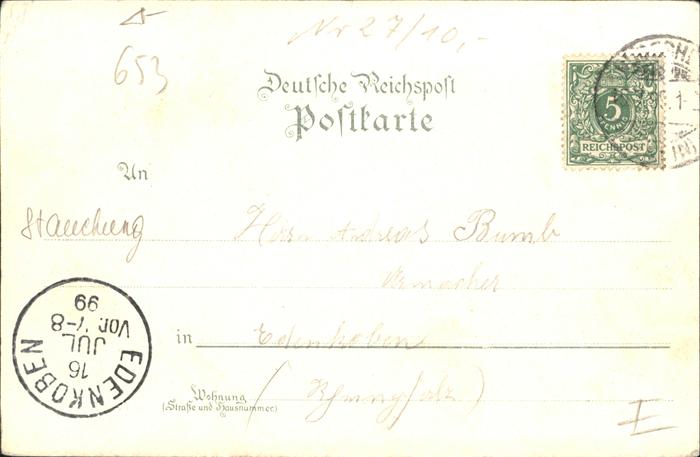 Nr 27/10,-
653
Deutsche Reichspost
Postkarte
5
PFENNIG
REICHSPOST
An
Stauchung
Herrn Andreas Bumb
in Edenkoben
(Rheinpfalz)
Wohnung
(Straße und Hausnummer)
EDENKOBEN
16
JUL
Vor. 7-8
99
I